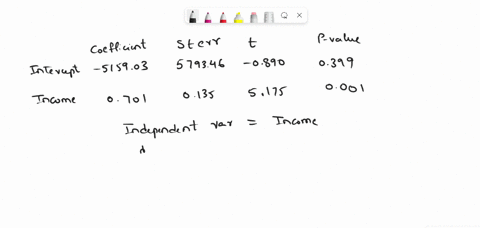 Coefficient Sterr t P-value
Intercept -5159.03 5793.46 -0.890 0.399
Income 0.701 0.135 5.175 0.001
Independent var = Income